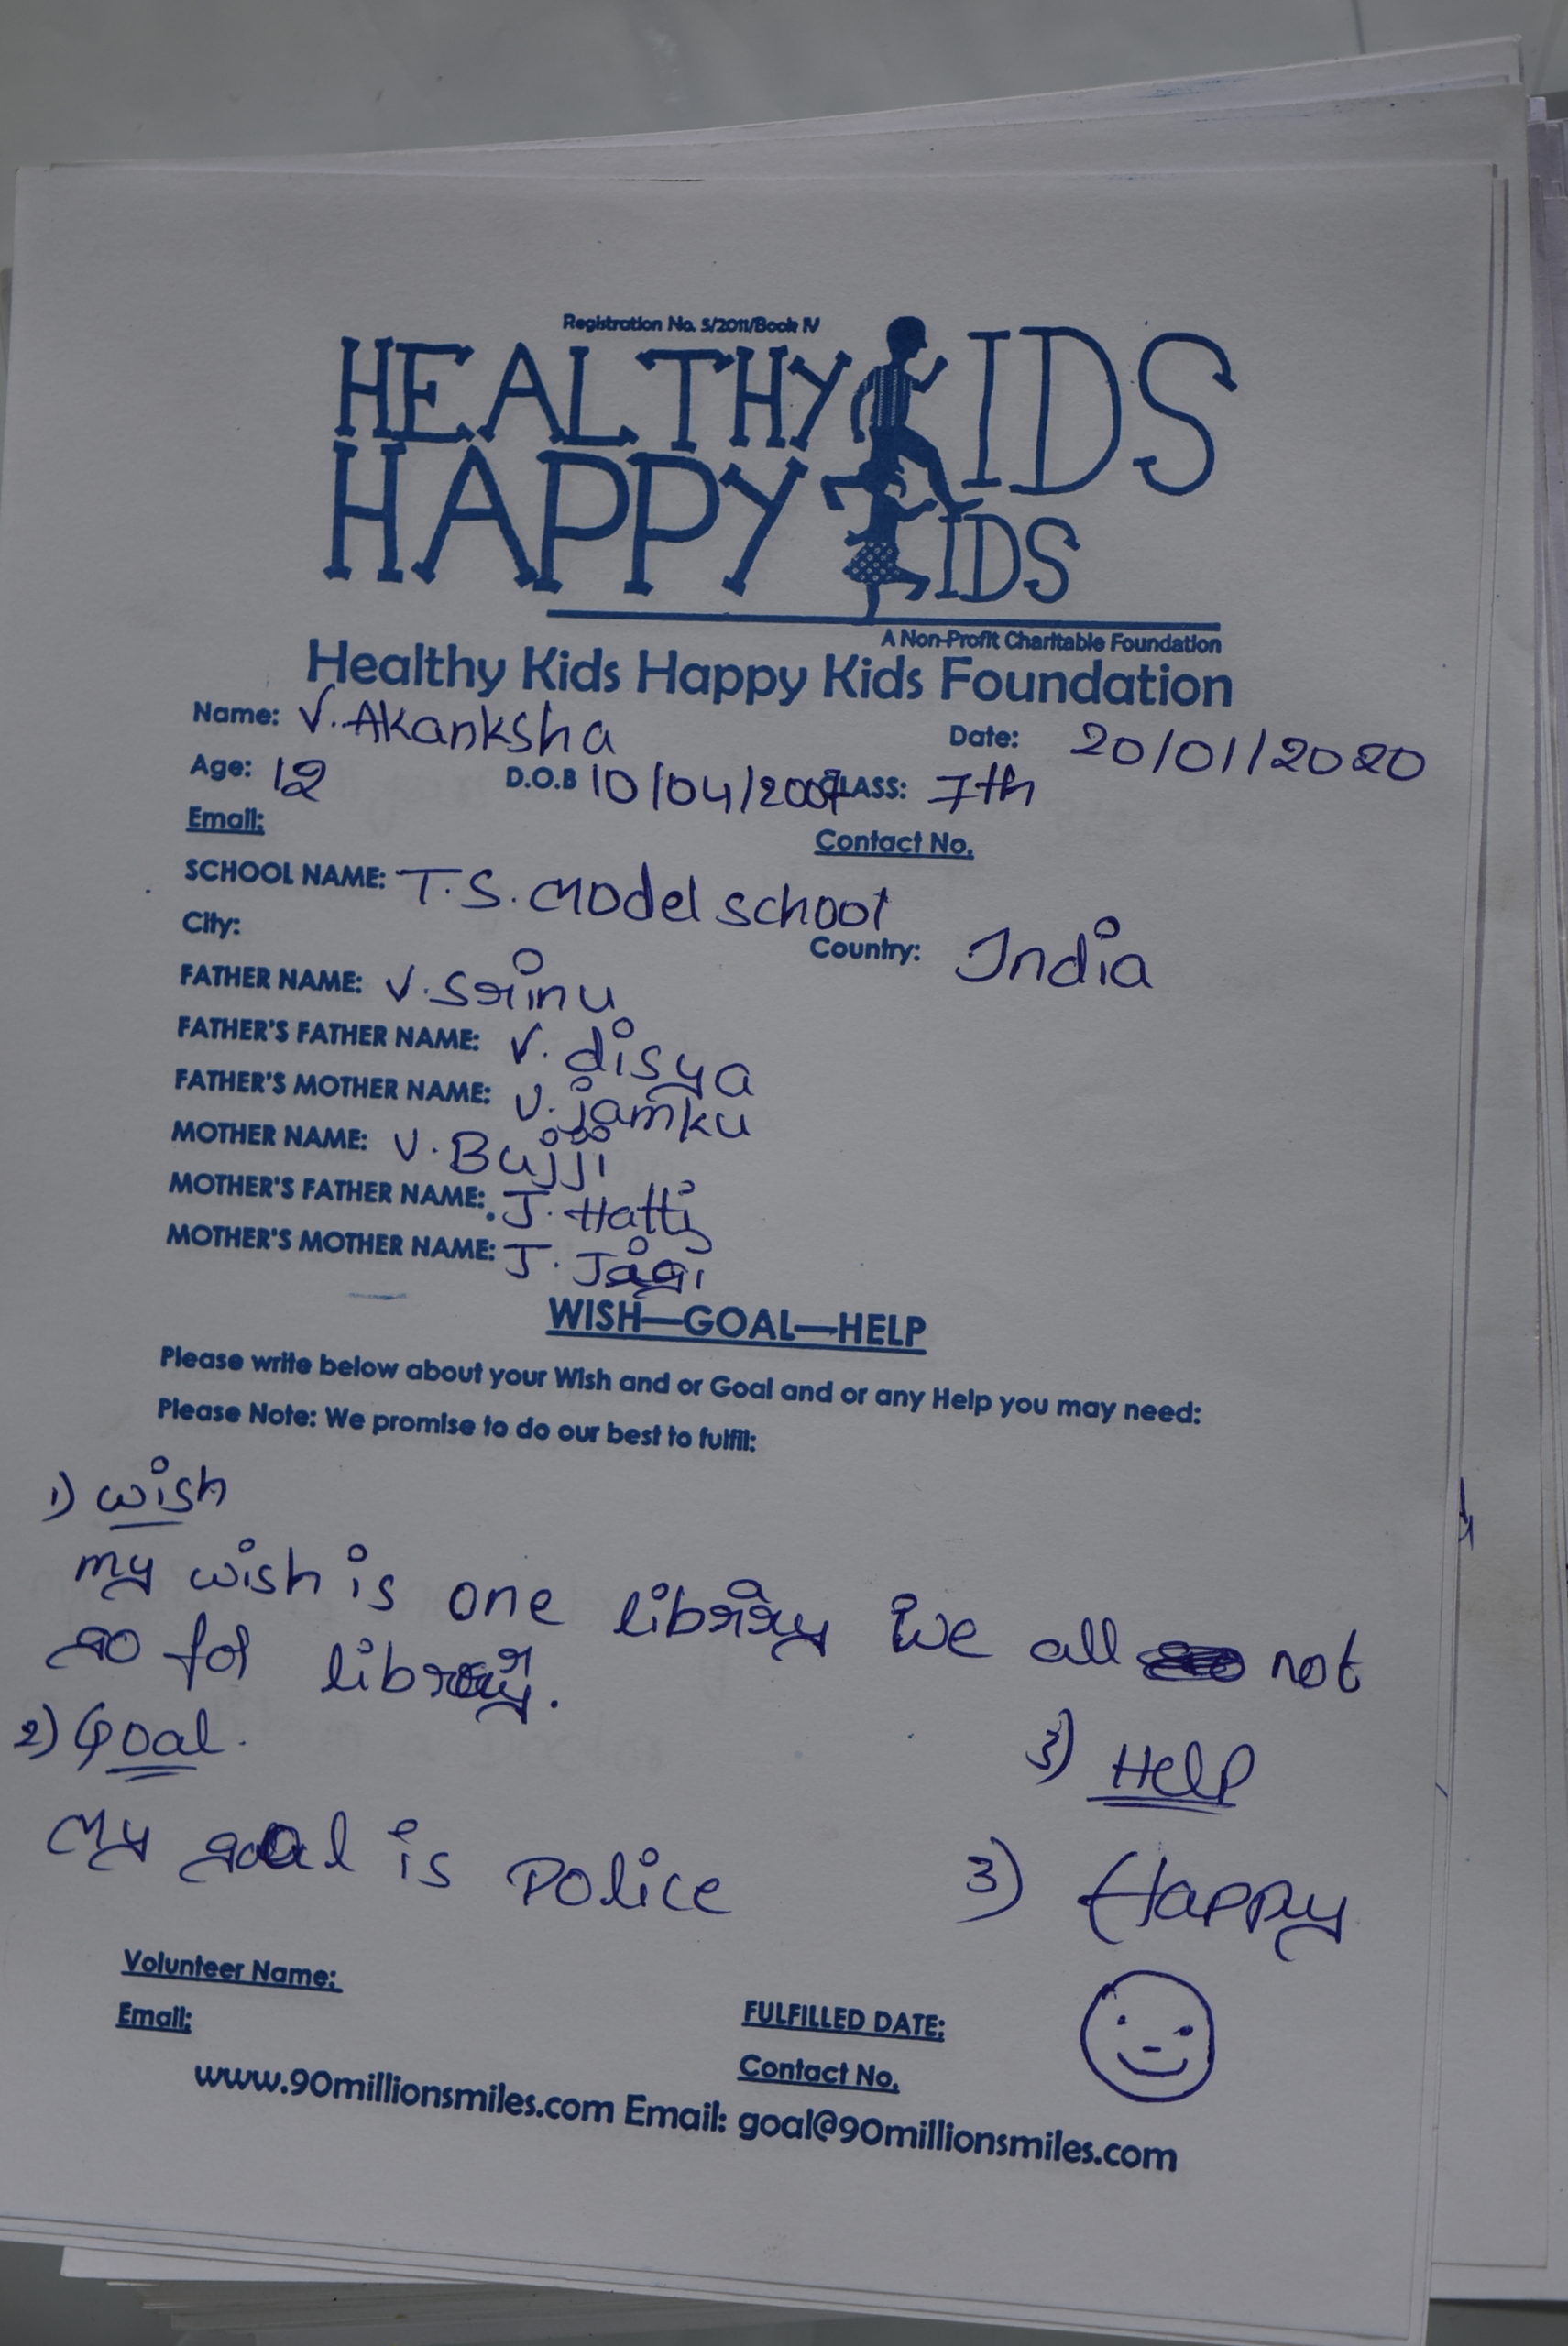 Registration No. 5/2011/Book IV
HEALTHY KIDS
HAPPY KIDS
A Non-Profit Charitable Foundation
Healthy Kids Happy Kids Foundation
Name: V. Akanksha Date: 20/01/2020
Age: 12 D.O.B 10/04/2007 CLASS: 7th
Email: Contact No.
SCHOOL NAME: T.S. model school
City: Country: India
FATHER NAME: V. Srinu
FATHER'S FATHER NAME: V. disya
FATHER'S MOTHER NAME: V. jamku
MOTHER NAME: V. Bujji
MOTHER'S FATHER NAME: J. Hatti
MOTHER'S MOTHER NAME: J. Jagi
WISH—GOAL—HELP
Please write below about your Wish and or Goal and or any Help you may need:
Please Note: We promise to do our best to fulfil:
1) wish
my wish is one library we all not
go for library.
2) Goal. 3) Help
My goal is Police 3) Happy
Volunteer Name:
Email: FULFILLED DATE:
Contact No.
www.90millionsmiles.com Email: goal@90millionsmiles.com